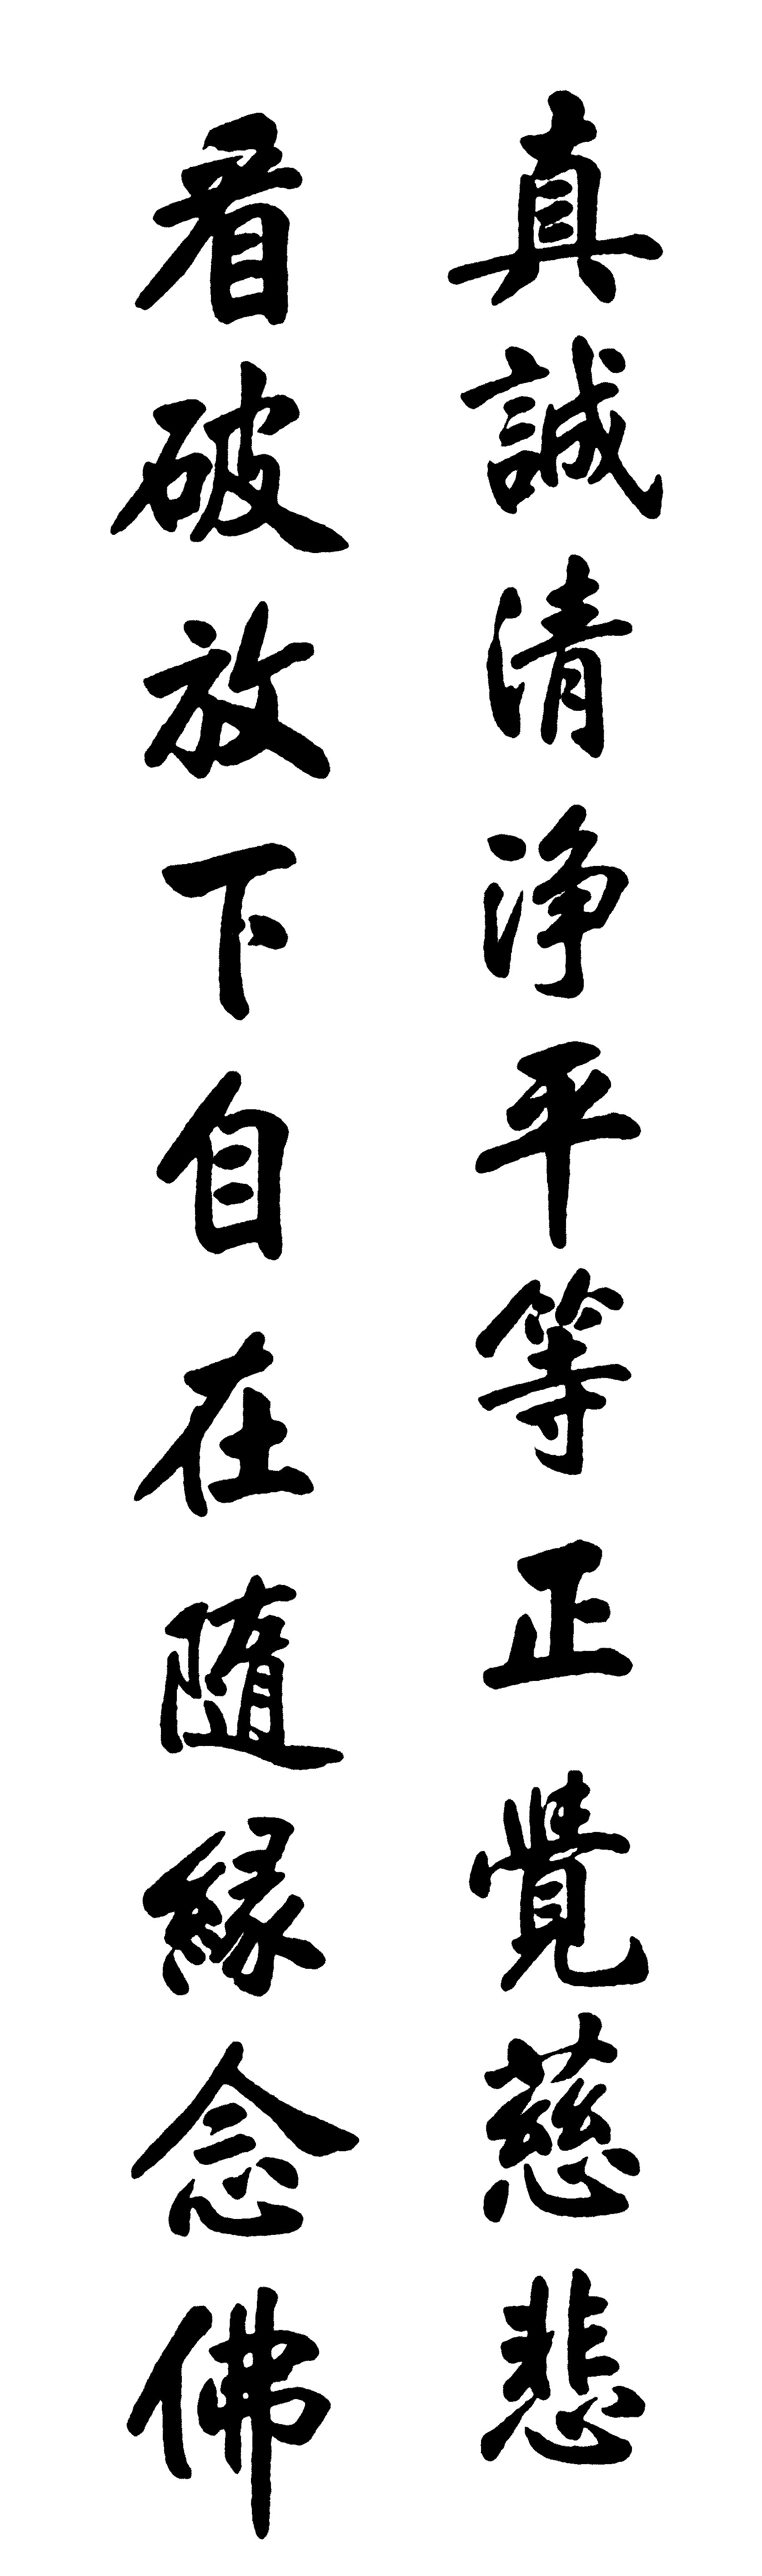 真誠清淨平等正覺慈悲
看破放下自在隨緣念佛